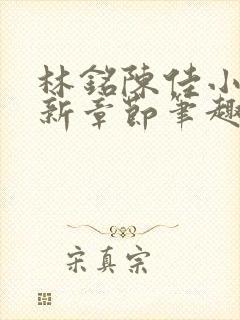 林銘陳佳小
新章節筆趣
宋真宗